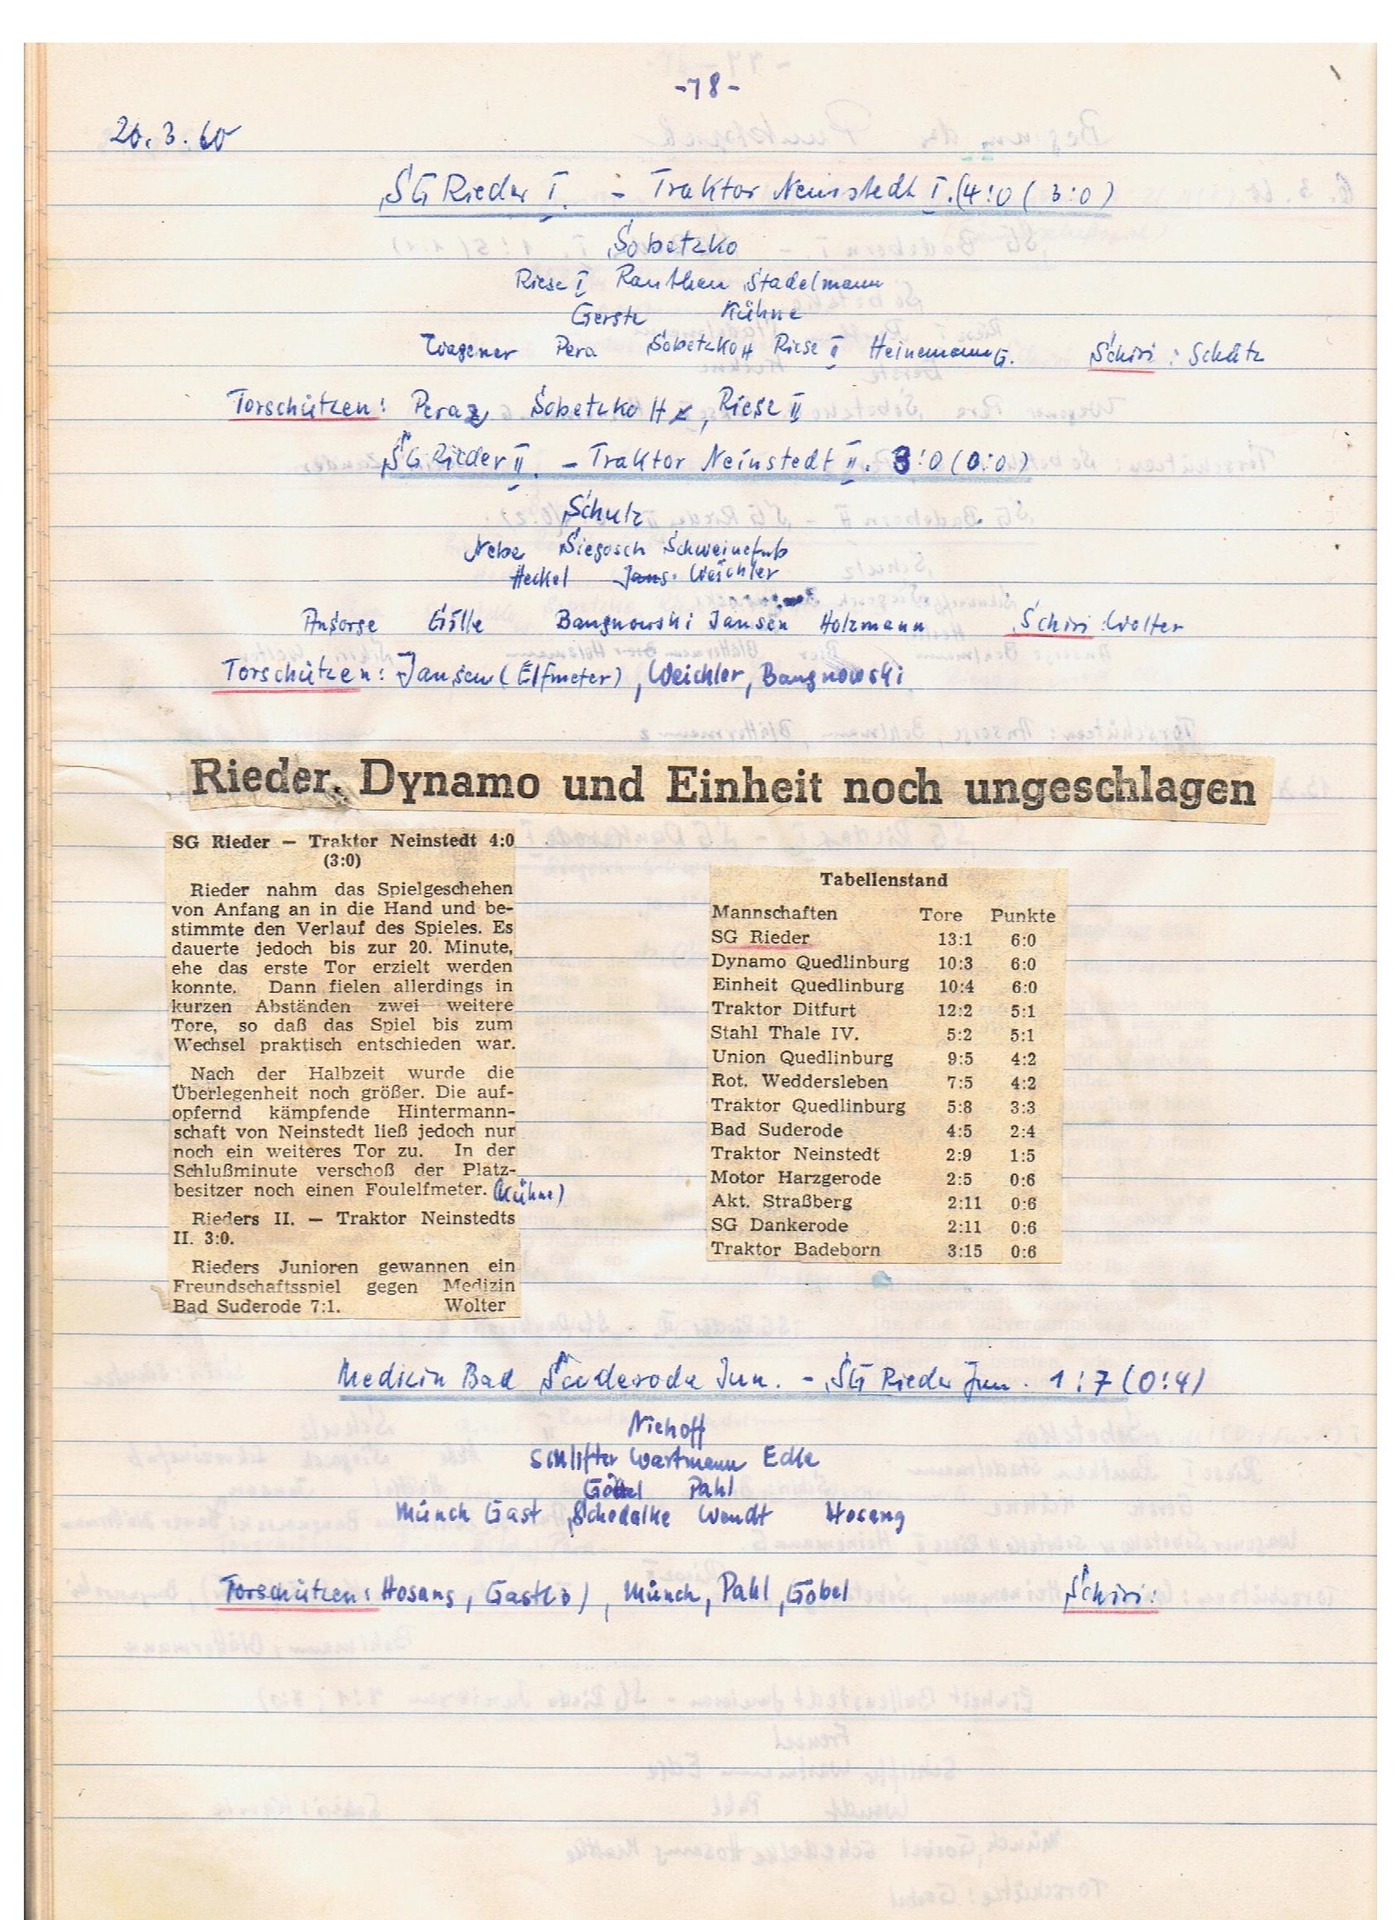 -78-
20.3.60
SG Rieder I. - Traktor Neinstedt I. (4:0 (3:0)
Sobetzko
Riese I Rauthen Stadelmann
Gerste Kühne
Wagener Pera Sobetzko H Riese II Heinemann G. Schiri: Schütz
Torschützen: Pera 2, Sobetzko H, Riese II
SG Rieder II. - Traktor Neinstedt II. 3:0 (0:0)
Schulz
Nebe Siegosch Schweinefuß
Heckel Weichler
Ansorge Gille Bangnowski Jansen Holzmann Schiri: Wolter
Torschützen: Jansen (Elfmeter), Weichler, Bangnowski
Rieder, Dynamo und Einheit noch ungeschlagen
SG Rieder — Traktor Neinstedt 4:0
(3:0)
Rieder nahm das Spielgeschehen
von Anfang an in die Hand und be-
stimmte den Verlauf des Spieles. Es
dauerte jedoch bis zur 20. Minute,
ehe das erste Tor erzielt werden
konnte. Dann fielen allerdings in
kurzen Abständen zwei weitere
Tore, so daß das Spiel bis zum
Wechsel praktisch entschieden war.
Nach der Halbzeit wurde die
Überlegenheit noch größer. Die auf-
opfernd kämpfende Hintermann-
schaft von Neinstedt ließ jedoch nur
noch ein weiteres Tor zu. In der
Schlußminute verschoß der Platz-
besitzer noch einen Foulelfmeter. (Kühne)
Rieders II. — Traktor Neinstedts
II. 3:0.
Rieders Junioren gewannen ein
Freundschaftsspiel gegen Medizin
Bad Suderode 7:1. Wolter
Tabellenstand
Mannschaften Tore Punkte
SG Rieder 13:1 6:0
Dynamo Quedlinburg 10:3 6:0
Einheit Quedlinburg 10:4 6:0
Traktor Ditfurt 12:2 5:1
Stahl Thale IV. 5:2 5:1
Union Quedlinburg 9:5 4:2
Rot. Weddersleben 7:5 4:2
Traktor Quedlinburg 5:8 3:3
Bad Suderode 4:5 2:4
Traktor Neinstedt 2:9 1:5
Motor Harzgerode 2:5 0:6
Akt. Straßberg 2:11 0:6
SG Dankerode 2:11 0:6
Traktor Badeborn 3:15 0:6
Medizin Bad Suderode Jun. - SG Rieder Jun. 1:7 (0:4)
Niehoff
Schlifter Wartmann Edle
Göbel Pahl
Münch Gast Schedalke Wendt Hosang
Torschützen: Hosang, Gast (3), Münch, Pahl, Göbel Schiri: